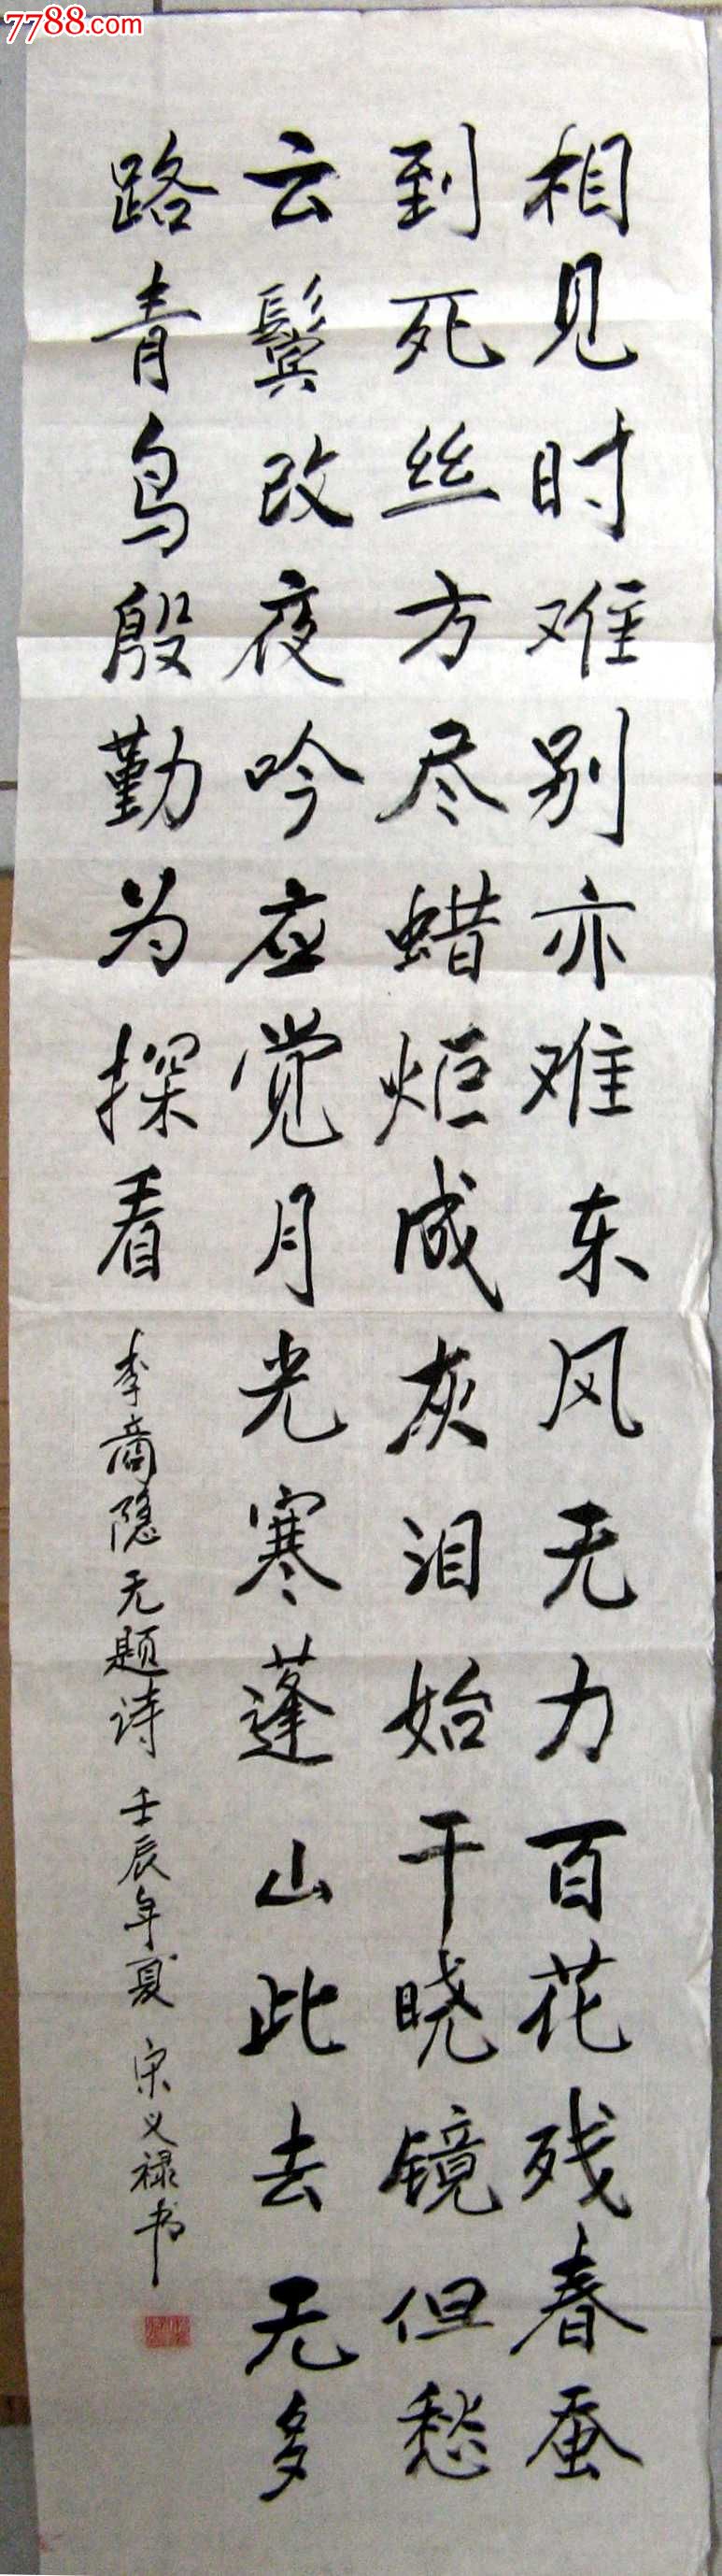 7788.com
相见时难别亦难东风无力百花残春蚕
到死丝方尽蜡炬成灰泪始干晓镜但愁
云鬓改夜吟应觉月光寒蓬山此去无多
路青鸟殷勤为探看
李商隐无题诗 壬辰年夏 宋义禄书